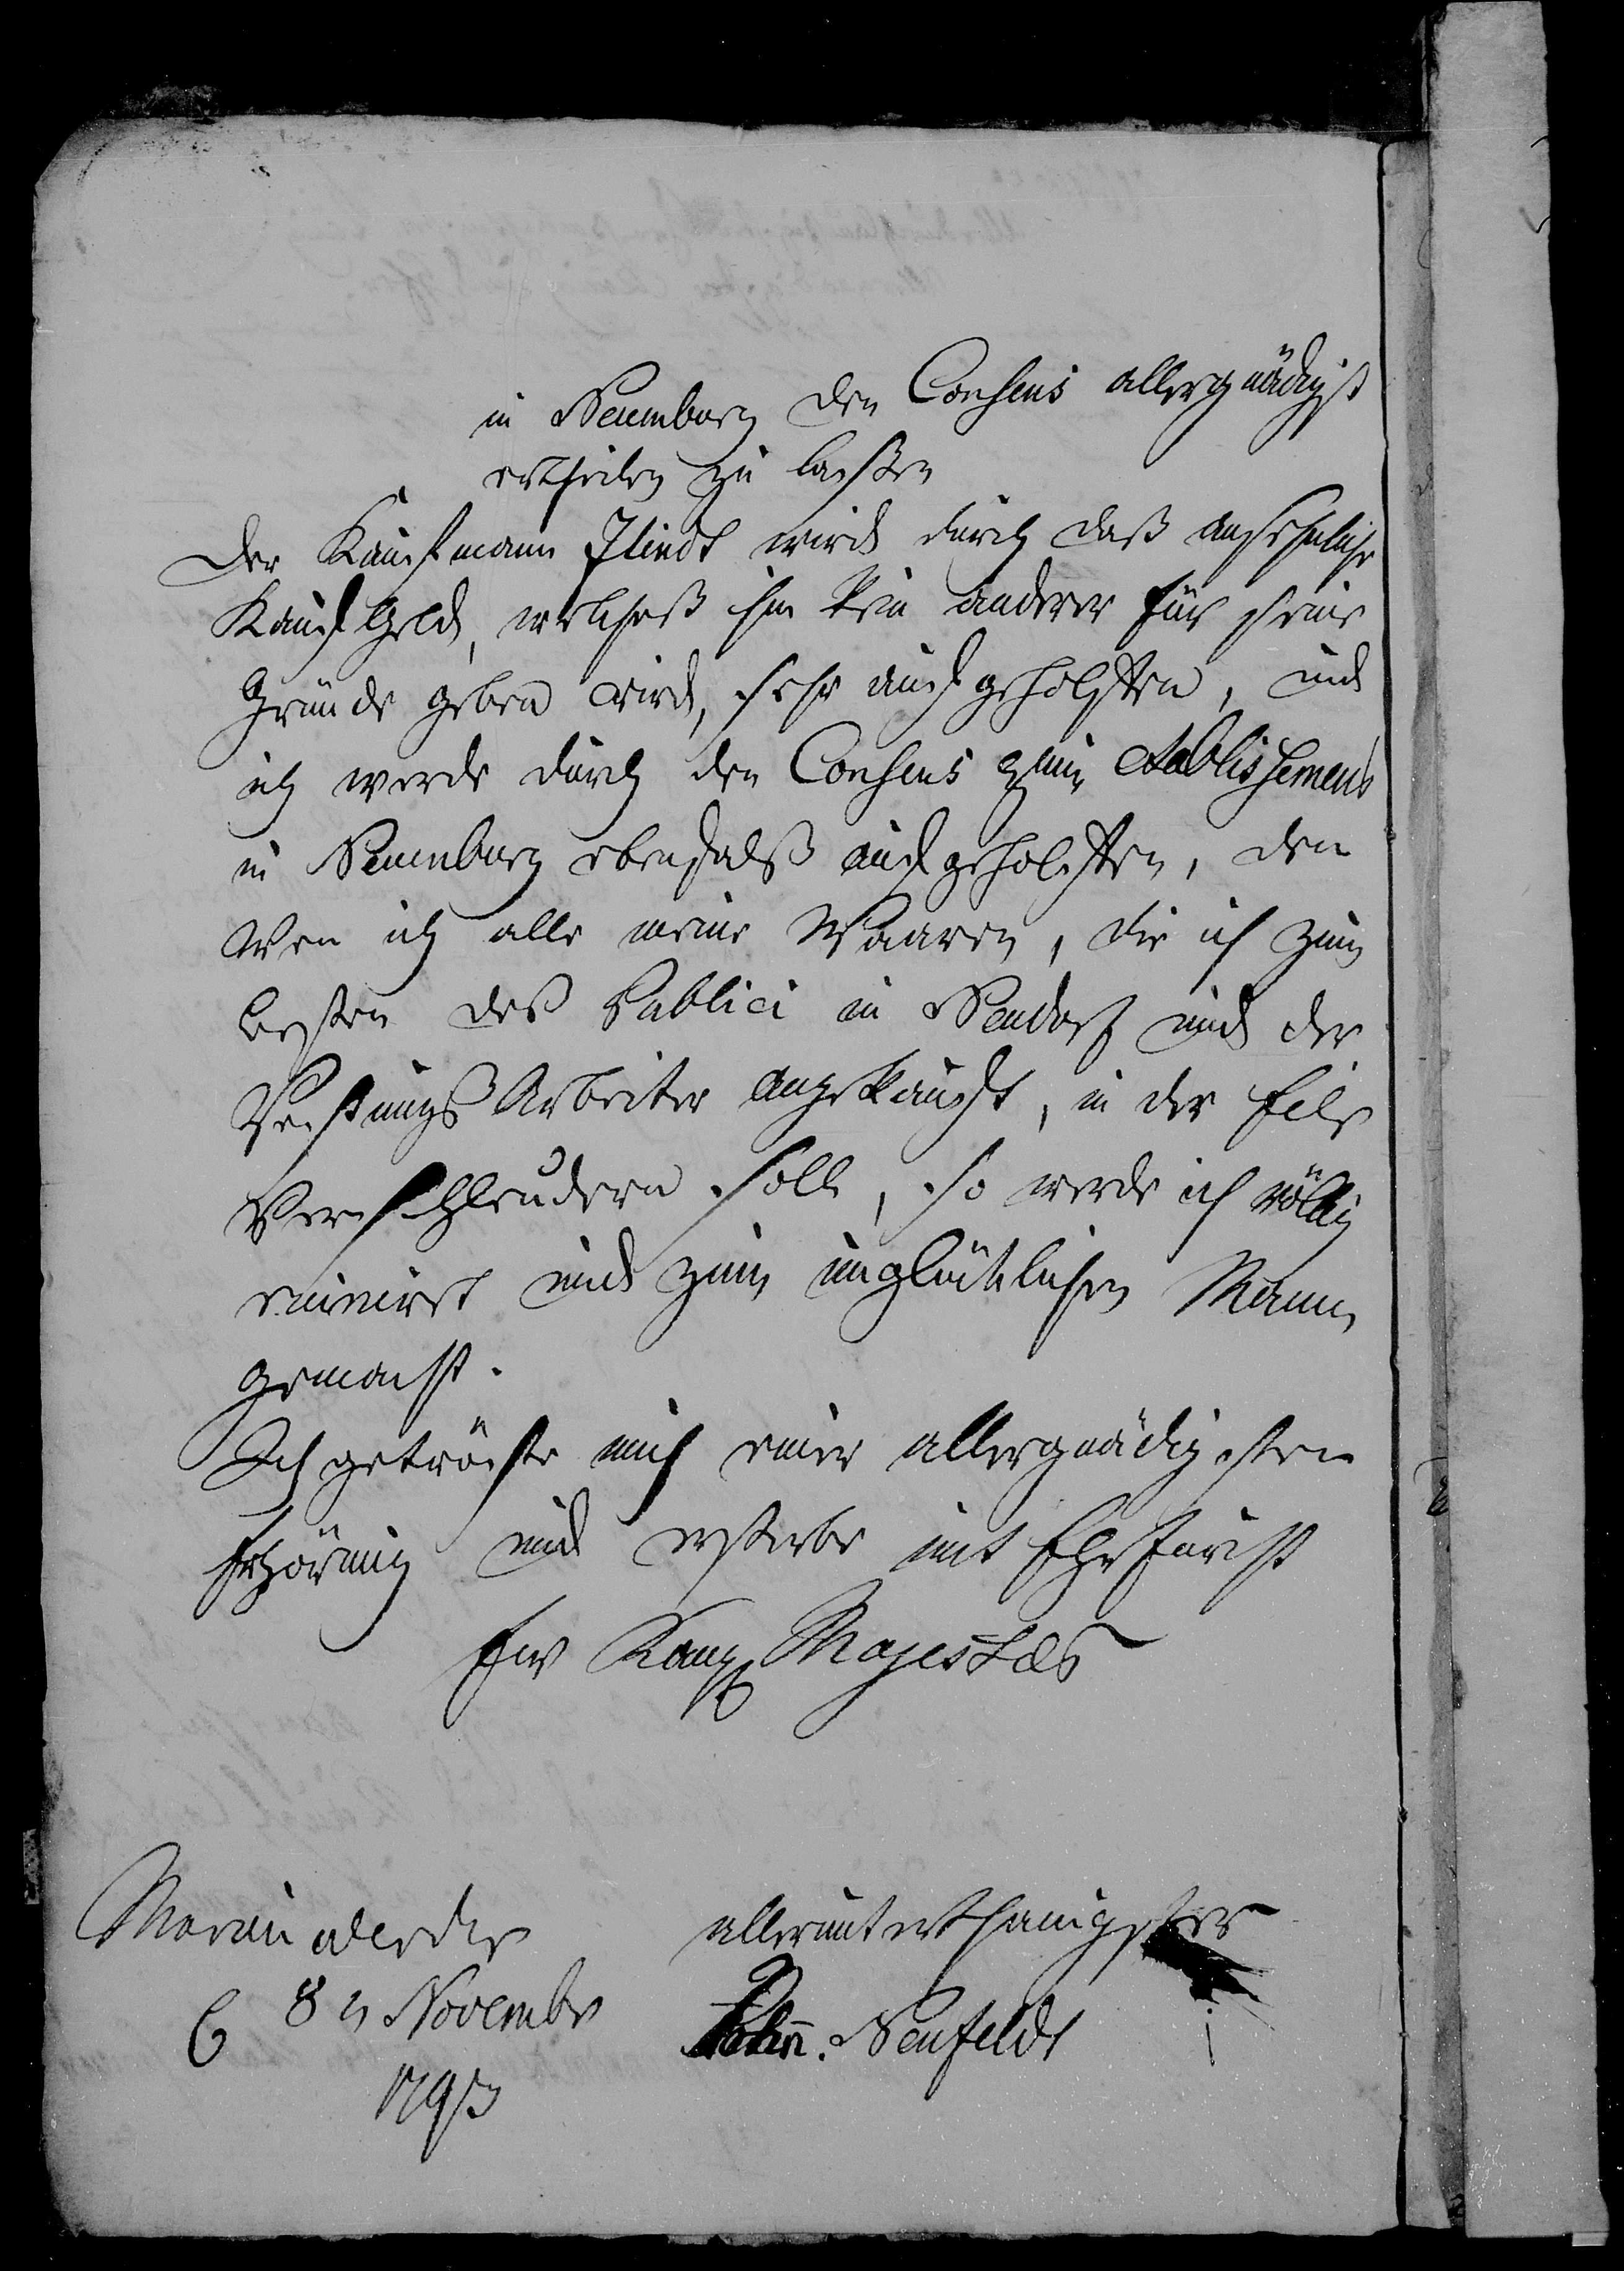 in Neuenburg den Consens allergnädigst
ertheilen zu lassen
Der Kaufmann Flindt wird durch daß ansehnliche
Kauf Geld, welcheß ihm kein anderer für seine
Gründe geben wird, sehr aufgeholffen, und
ich werde durch den Consens zum etablissement
in Neuenburg ebenfalß aufgeholffen, den
Wen ich alle meine Waaren, die ich zum
besten deß Publici in Neudorf und der
Vestungs Arbeiter angekauft, in der Eile
Verschleudern soll, so werde ich völlig
ruinirt und zum unglücklichen Mann
gemacht.
Ich getröste mich einer allergnädigsten
Erhörung und ersterbe mit Ehrfurcht
Ew Königl Majestät
Marienwerder allerunterthänigster
d 8 n Novembr Neufeldt
1793